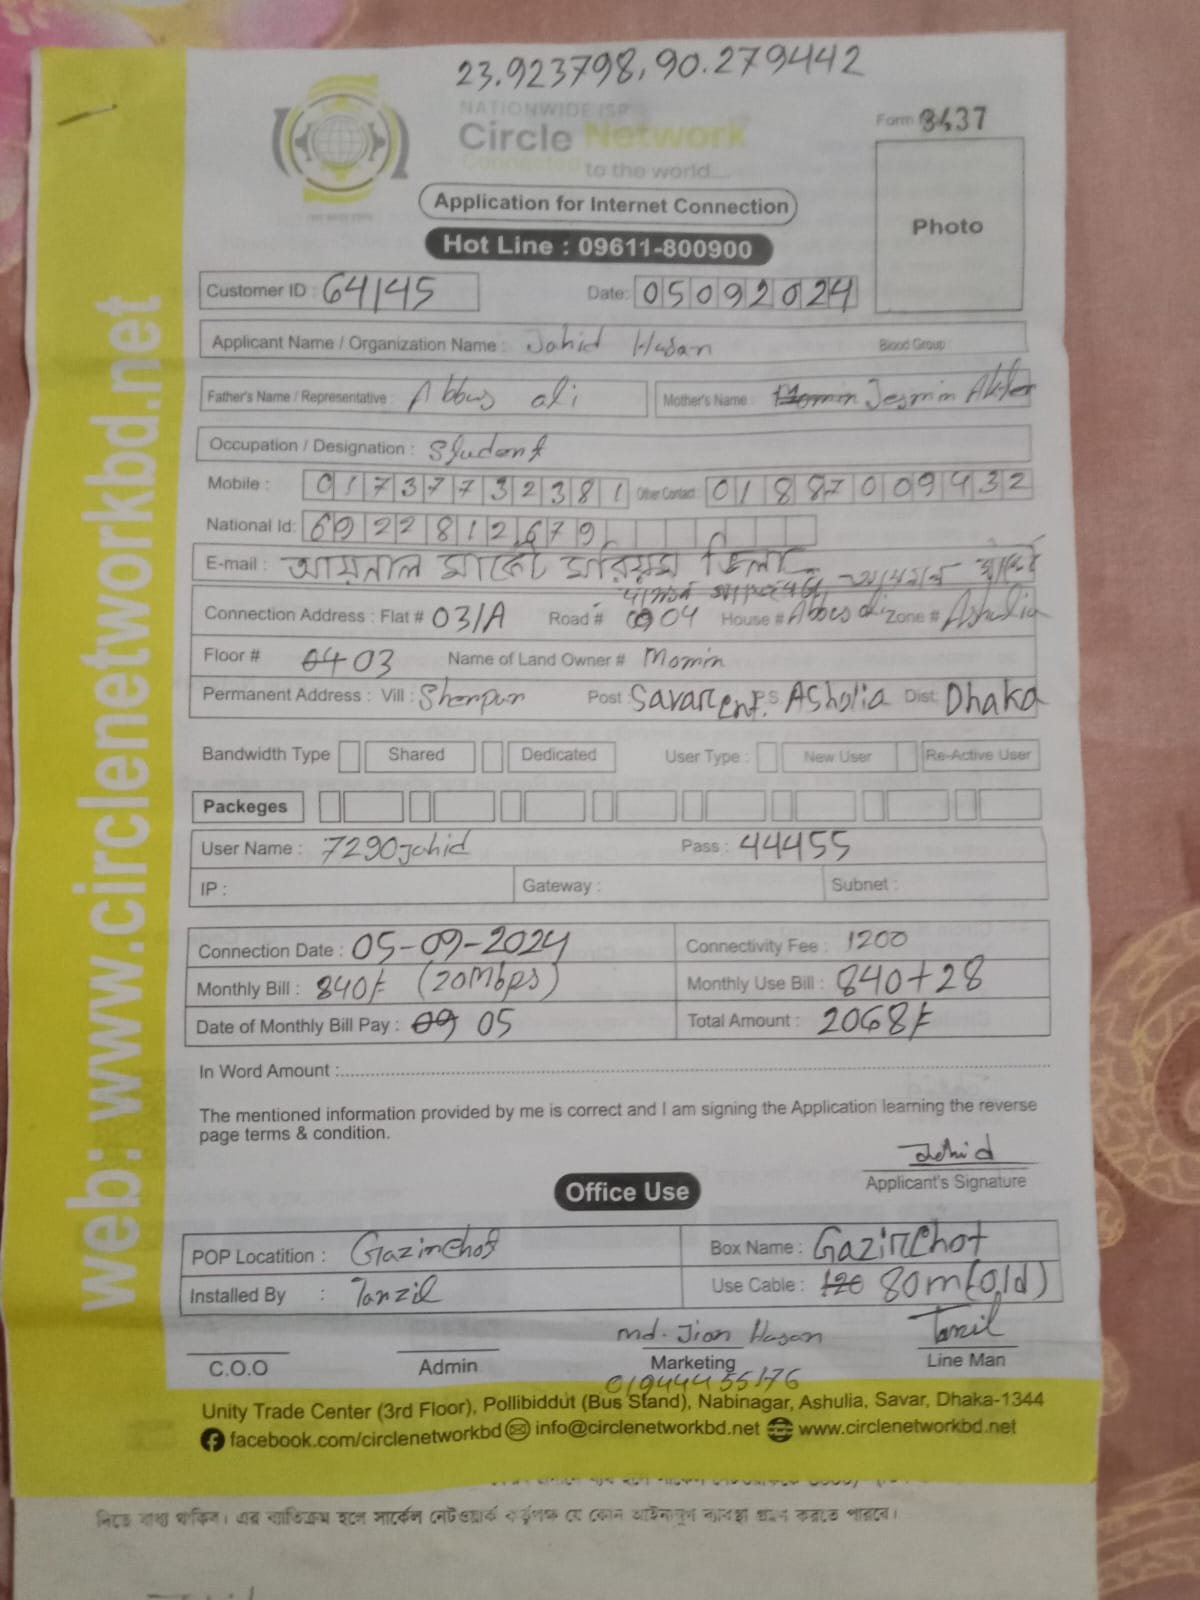 23.923798, 90.279442
NATIONWIDE ISP
Circle Network
Connected to the world...
Form 3437
Application for Internet Connection
Photo
Hot Line : 09611-800900
Customer ID : 64145 Date: 05092024
Applicant Name / Organization Name : Jahid Hasan Blood Group
Father's Name / Representative : Abbus ali Mother's Name : Jesmin Akter
Occupation / Designation : Student
Mobile : 01737732381 Other Contact 01887009432
National Id: 6922812679
E-mail : আয়নাল মার্কেট মরিয়ম ভিলা
Connection Address : Flat # 03/A Road # 04 House # Abbus ali Zone # Ashulia
Floor # 03 Name of Land Owner # Momin
Permanent Address : Vill : Sherpur Post : Savar Cent. P.S Asholia Dist: Dhaka
Bandwidth Type Shared Dedicated User Type : New User Re-Active User
Packeges
User Name : 7290jahid Pass : 44455
IP : Gateway : Subnet :
Connection Date : 05-09-2024 Connectivity Fee : 1200
Monthly Bill : 840/- (20Mbps) Monthly Use Bill : 840+28
Date of Monthly Bill Pay : 09 05 Total Amount : 2068/-
In Word Amount :
The mentioned information provided by me is correct and I am signing the Application learning the reverse
page terms & condition.
Jahid
Applicant's Signature
Office Use
POP Locatition : Gazirchot Box Name : Gazirchot
Installed By : Tanzil Use Cable : 120 80m(old)
md. Jion Hasan Tanzil
C.O.O Admin Marketing Line Man
01944455176
Unity Trade Center (3rd Floor), Pollibiddut (Bus Stand), Nabinagar, Ashulia, Savar, Dhaka-1344
facebook.com/circlenetworkbd info@circlenetworkbd.net www.circlenetworkbd.net
web: www.circlenetworkbd.net
নিতে বাধ্য থাকিব। এর ব্যতিক্রম হলে সার্কেল নেটওয়ার্ক কর্তৃপক্ষ যে কোন আইনানুগ ব্যবস্থা গ্রহন করতে পারবে।